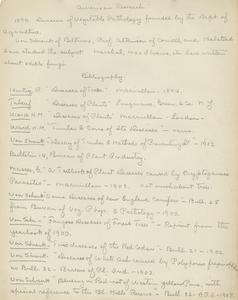 American Research
1890. Division of Vegetable Pathology founded by the Dept of
Agriculture.
Von Schrenk of Baltimore, Prof. Atkinson of Cornell, and Halsted
have studied the subject. Marshall, MacIlvaine, etc. have written
about edible fungi.
Bibliography.
Hartig, R. "Diseases of Trees" Macmillan - 1894.
Tubeuf "Diseases of Plants" Longmans, Green & Co. N.Y.
Ward H.M. "Diseases of Plants" Macmillan - London -
Ward. H.M. "Timber & Some of its Diseases" -
Von Schrenk "Decay of Timber & Methods of Preventing it" - 1902
Bulletin 14, Bureau of Plant Industry.
Massee, G. "A Textbook of Plant Diseases caused by Cryptogamic
Parasites" - Macmillan - 1903.
Von Schrenk Some diseases of New England Conifers - Bull. 25
from Division of Veg. Phys. & Pathology - 1900
Von Schrenk - Fungous Diseases of Forest Trees - Reprint from the
yearbook of 1900.
Von Schrenk "Two diseases of the Red Cedar" - Bull. 21 - 1900.
Von Schrenk - Disease of White Ash caused by Polyporus fraxinophilus
Bull. 32 - Bureau of Pl. Ind. - 1903.
Von Schrenk of the Western Yellow Pine, with
special reference to the Black Hills Reserve - Bull. 36 - 1903